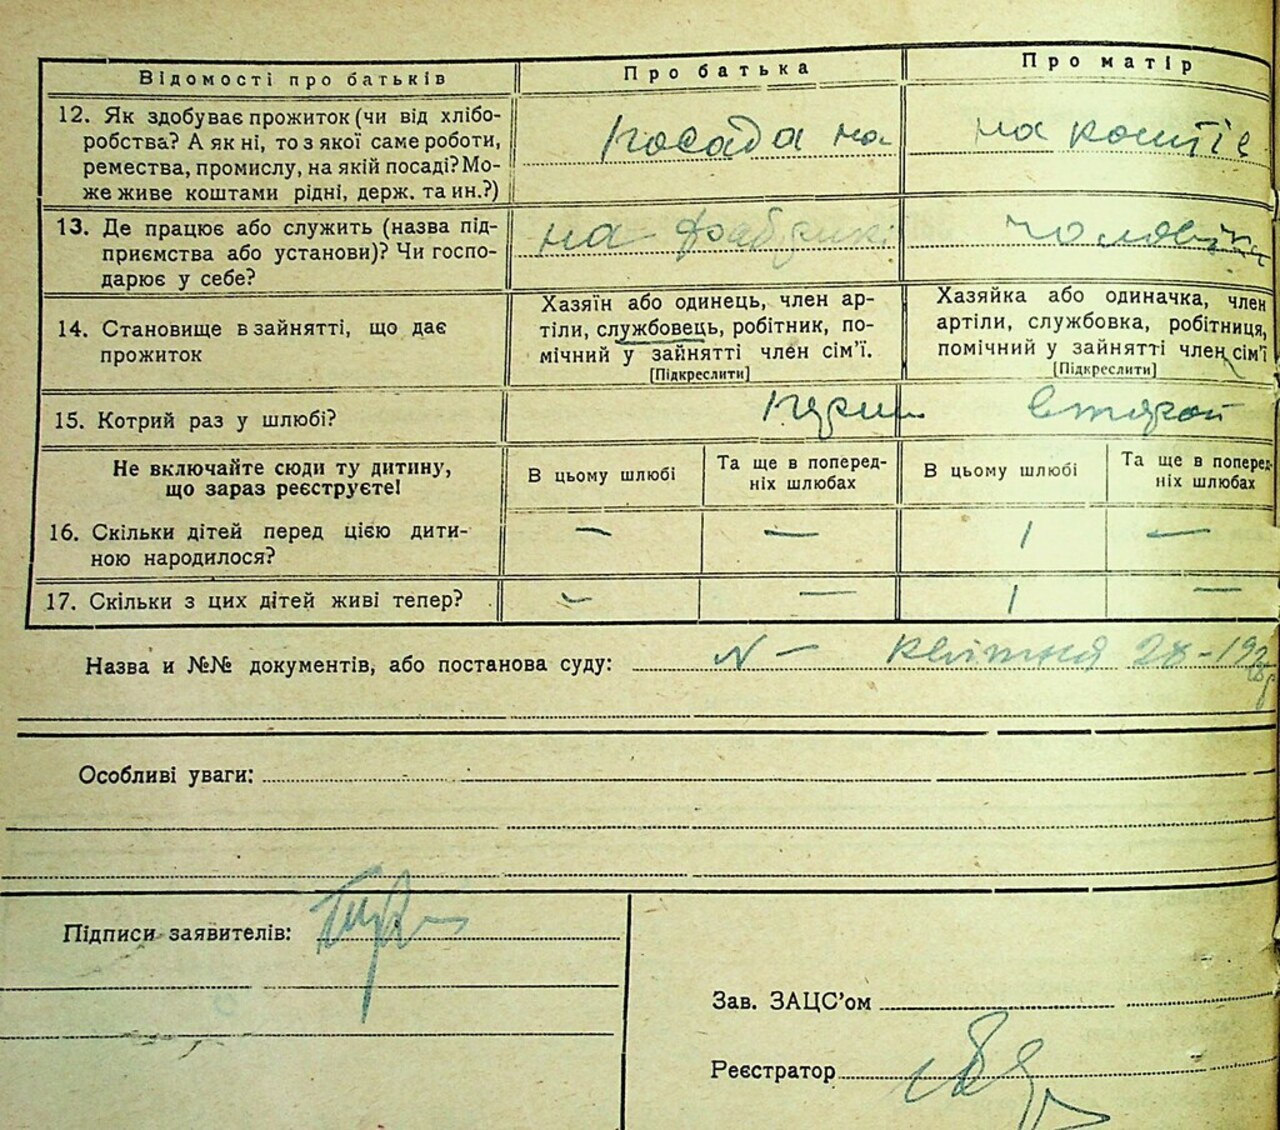 Відомості про батьків Про батька Про матір
12. Як здобуває прожиток (чи від хлібо-
робства? А як ні, то з якої саме роботи,
ремества, промислу, на якій посаді? Мо-
же живе коштами рідні, держ. та ин.?)
посада на на коштів
13. Де працює або служить (назва під-
приємства або установи)? Чи госпо-
дарює у себе?
на фабрикі чоловіка
14. Становище в зайнятті, що дає
прожиток
Хазяїн або одинець, член ар-
тіли, службовець, робітник, по-
мічний у зайнятті член сім'ї.
[Підкреслити]
Хазяйка або одиначка, член
артіли, службовка, робітниця,
помічний у зайнятті член сім'ї
[Підкреслити]
15. Котрий раз у шлюбі? второй
Не включайте сюди ту дитину,
що зараз реєструєте!
В цьому шлюбі
Та ще в поперед-
ніх шлюбах
В цьому шлюбі
Та ще в поперед-
ніх шлюбах
16. Скільки дітей перед цією дити-
ною народилося?
— — 1 —
17. Скільки з цих дітей живі тепер? — — 1 —
Назва и №№ документів, або постанова суду: N — квітня 28 -
Особливі уваги:
Підписи заявителів:
Зав. ЗАЦС'ом
Реєстратор